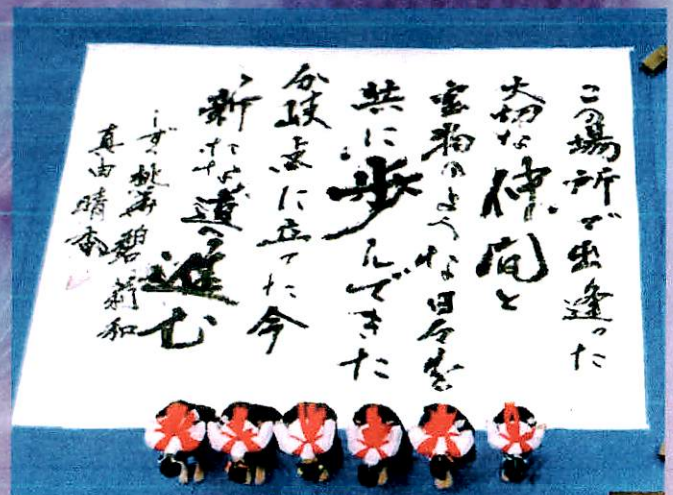 この場所で出逢った
大切な仲間と
宝物のような日々を
共に歩んできた
分岐点に立った今
新たな道へ進む
しず 桃華 碧 莉和
真由 晴香